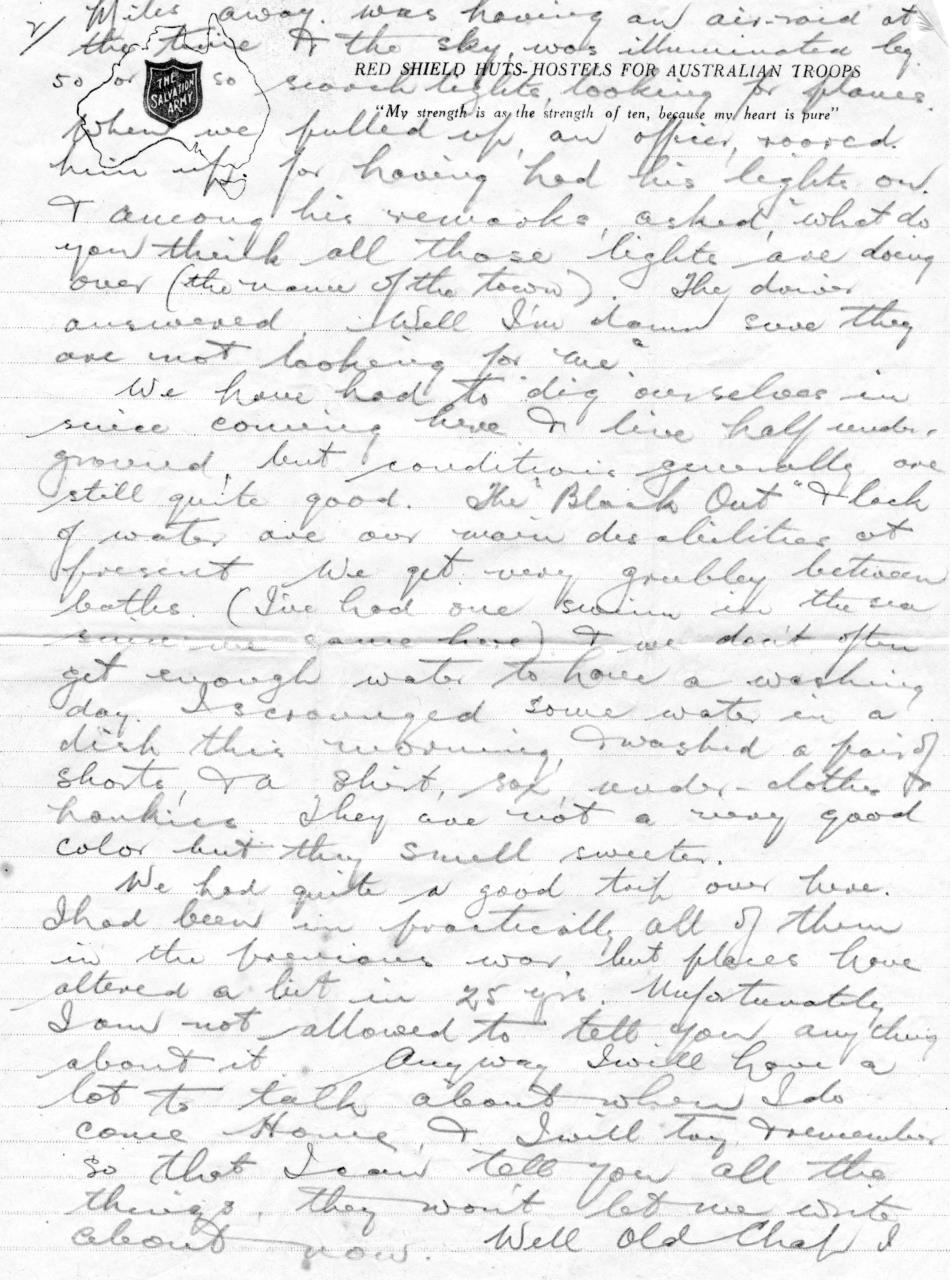 2/ Miles away. was having an air-raid at
the time & the sky was illuminated by
50 or so search lights, looking for planes.
THE
SALVATION
ARMY
RED SHIELD HUTS-HOSTELS FOR AUSTRALIAN TROOPS
"My strength is as the strength of ten, because my heart is pure"
When we pulled up, an officer, roared.
him up, for having had his lights on.
& among his remarks, asked, "what do
you think all those lights are doing
over (the name of the town). The driver
answered, Well I'm damn sure they
are not looking for "me"
We have had to "dig" ourselves in
since coming here & live half under-
ground, but conditions generally are
still quite good. The "Black Out" & lack
of water are our main disabilities at
present We get very grubby between
baths. (I've had one swim in the sea
since we came here) & we don't often
get enough water to have a washing
day. I scrounged some water in a
dish this morning, & washed a pair of
shorts, & a shirt, sox, under-clothes &
hankies They are not a very good
color but they smell sweeter.
We had quite a good trip over here.
I had been in practically all of them
in the previous war, but places have
altered a bit in 25 yrs. Unfortunately
I am not allowed to tell you anything
about it Anyway I will have a
lot to talk about when I do
come Home, & I will try & remember
so that I can tell you all the
things, they won't let me write
about now. Well Old Chap I